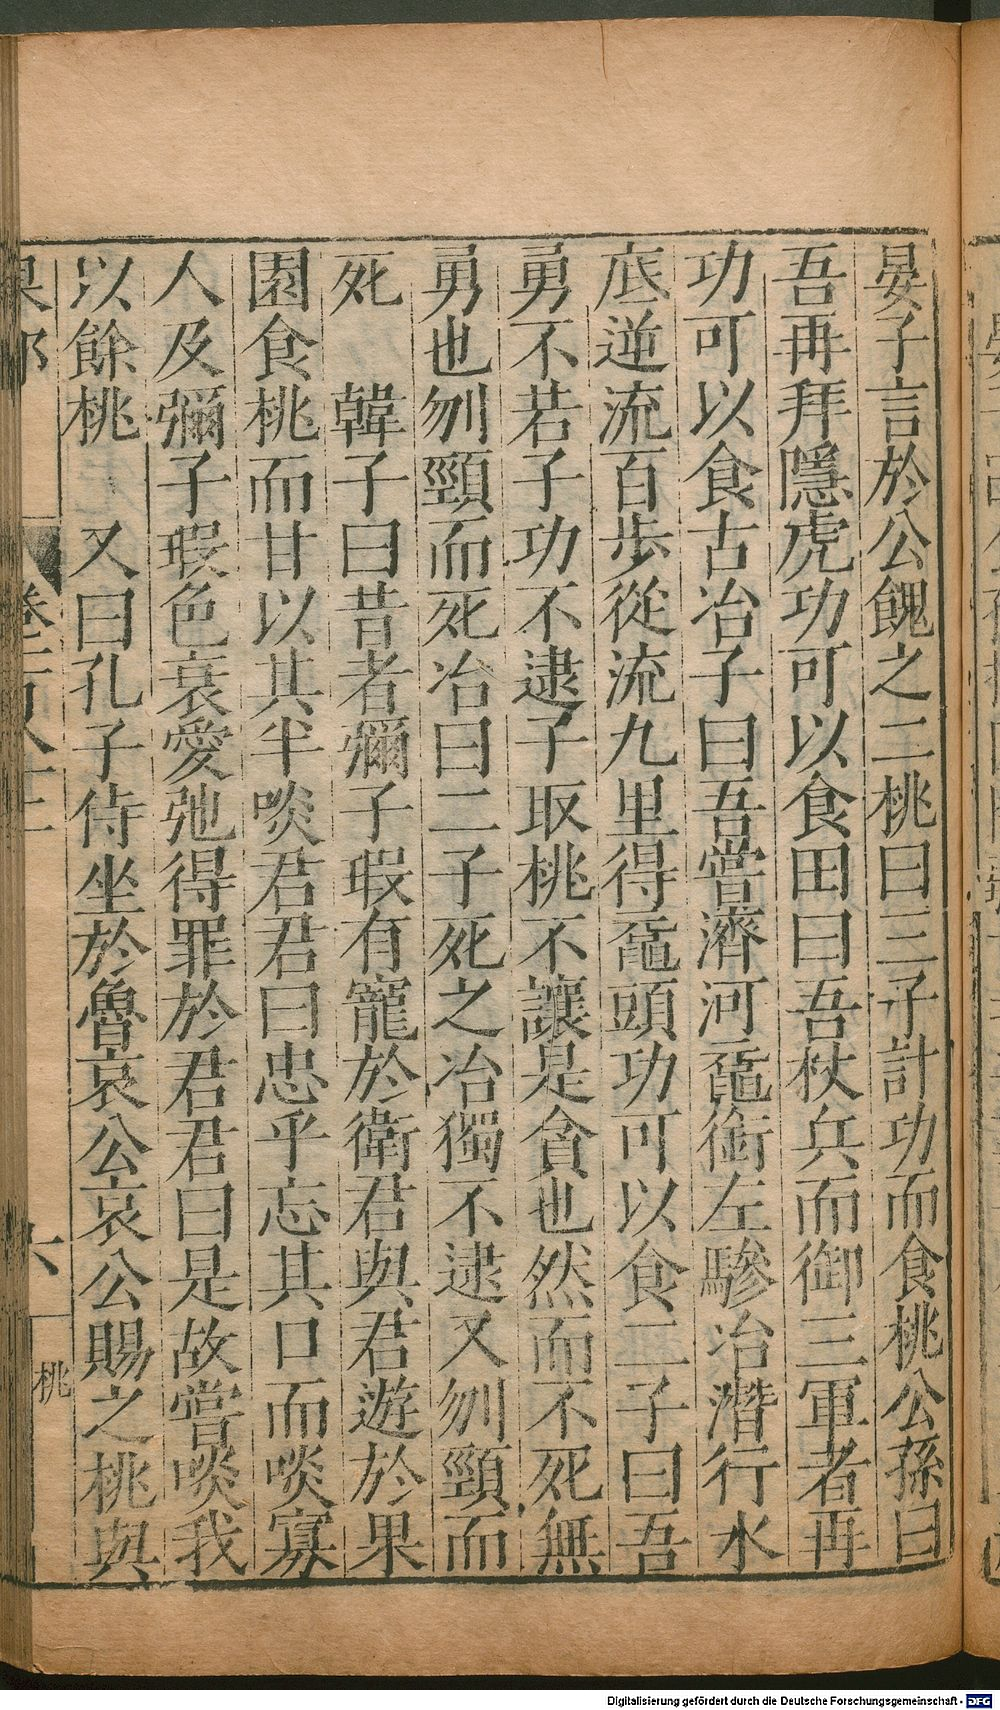 晏子言於公餽之二桃曰三子計功而食桃公孫曰
吾再拜隱虎功可以食田曰吾杖兵而御三軍者再
功可以食古冶子曰吾嘗濟河黿銜左驂冶潛行水
底逆流百步從流九里得黿頭功可以食二子曰吾
勇不若子功不逮子取桃不讓是貪也然而不死無
勇也刎頸而死冶曰二子死之冶獨不逮又刎頸而
死　韓子曰昔者彌子瑕有寵於衛君與君遊於果
園食桃而甘以其半啖君君曰忠乎忘其口而啖寡
人及彌子瑕色衰愛弛得罪於君君曰是故嘗啖我
以餘桃　又曰孔子侍坐於魯哀公哀公賜之桃與
果部
六
桃
Digitalisierung gefördert durch die Deutsche Forschungsgemeinschaft - DFG